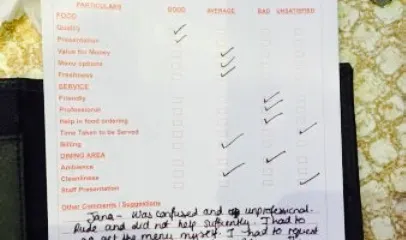 PARTICULARS GOOD AVERAGE BAD UNSATISFIED
FOOD
Quality
Presentation
Value for Money
Menu options
Freshness
SERVICE
Friendly
Professional
Help in food ordering
Time Taken to be Served
Billing
DINING AREA
Ambience
Cleanliness
Staff Presentation
Other Comments / Suggestions
Jana - Was confused and unprofessional.
Rude and did not help sufficiently. I had to
go get the menu myself. I had to request